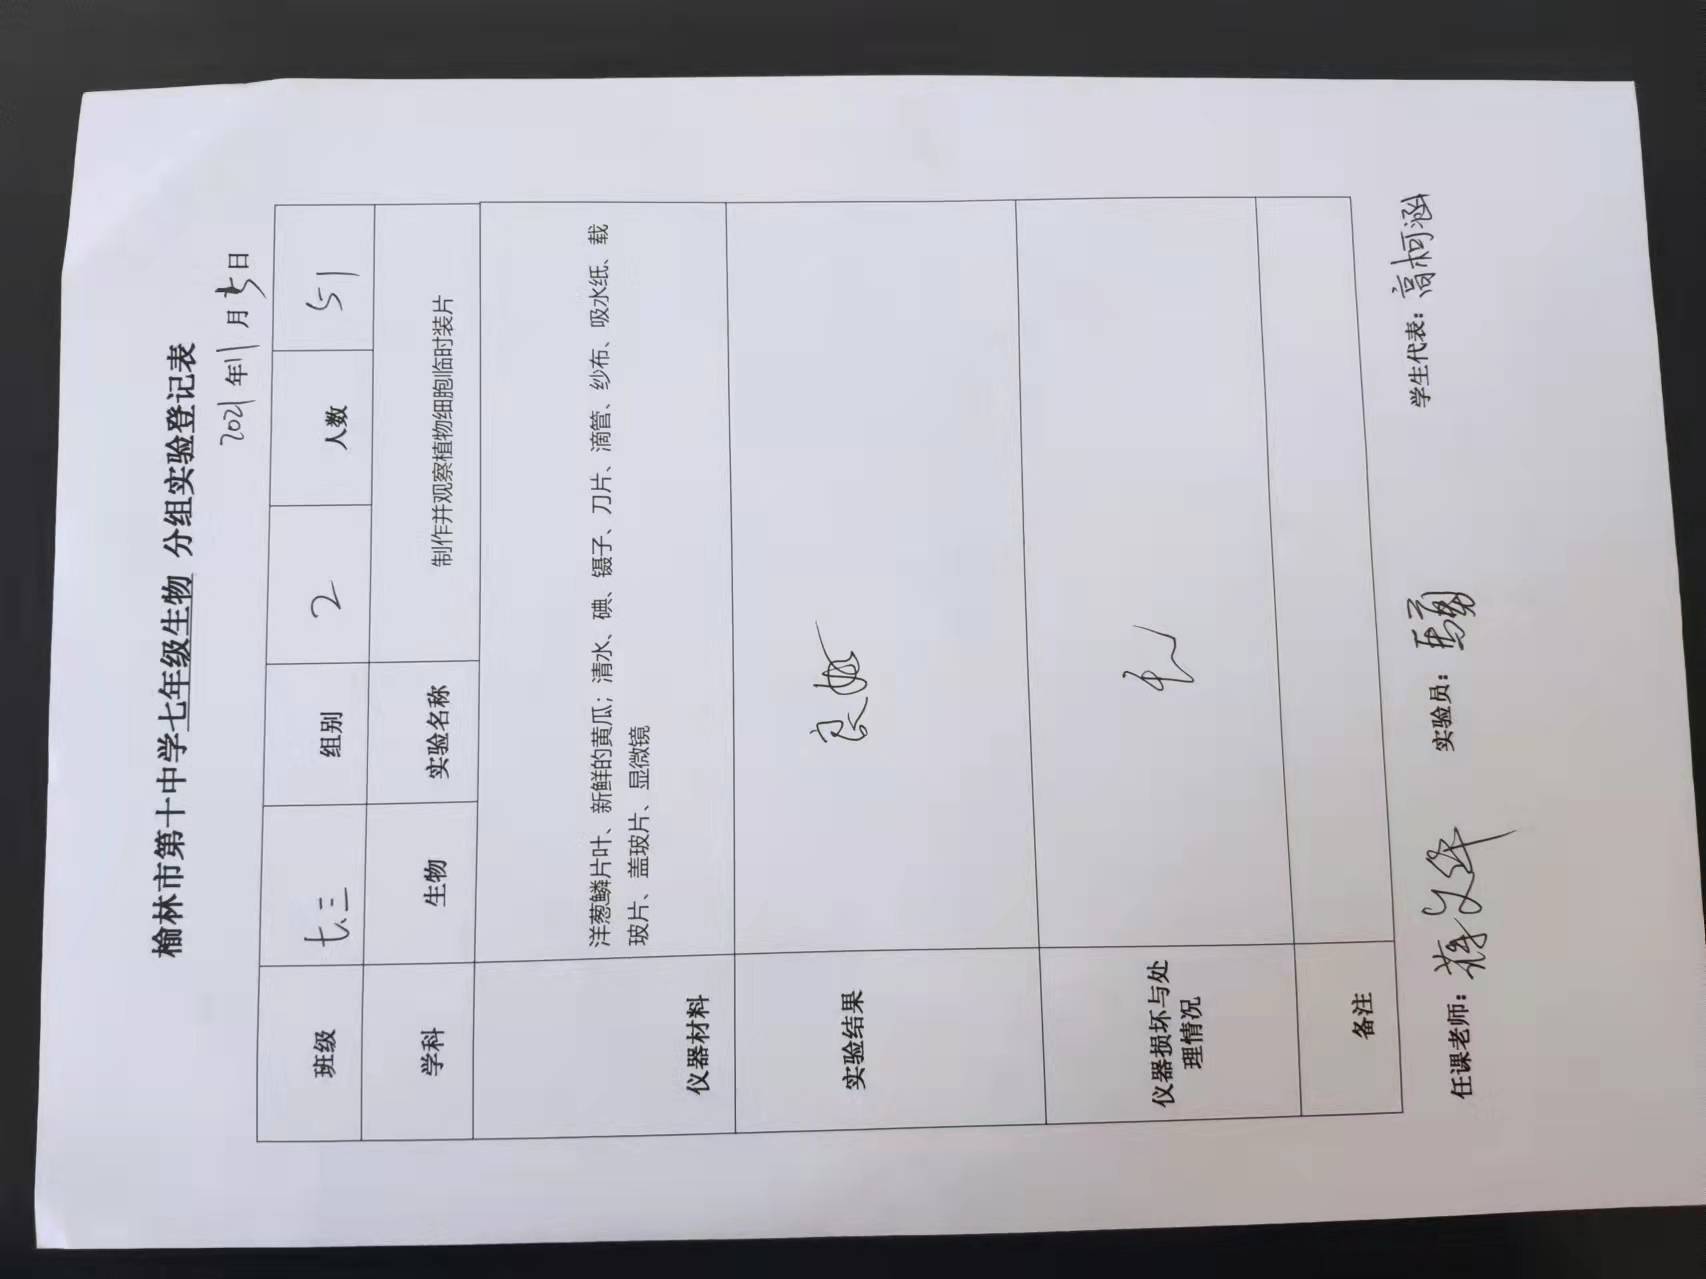 榆林市第十中学七年级生物 分组实验登记表
2021年11月5日
班级 七.三 组别 2 人数 51
学科 生物 实验名称 制作并观察植物细胞临时装片
仪器材料
洋葱鳞片叶、新鲜的黄瓜；清水、碘、镊子、刀片、滴管、纱布、吸水纸、载
玻片、盖玻片、显微镜
实验结果 良好
仪器损坏与处
理情况 无
备注
任课老师： 实验员： 学生代表：高柯涵